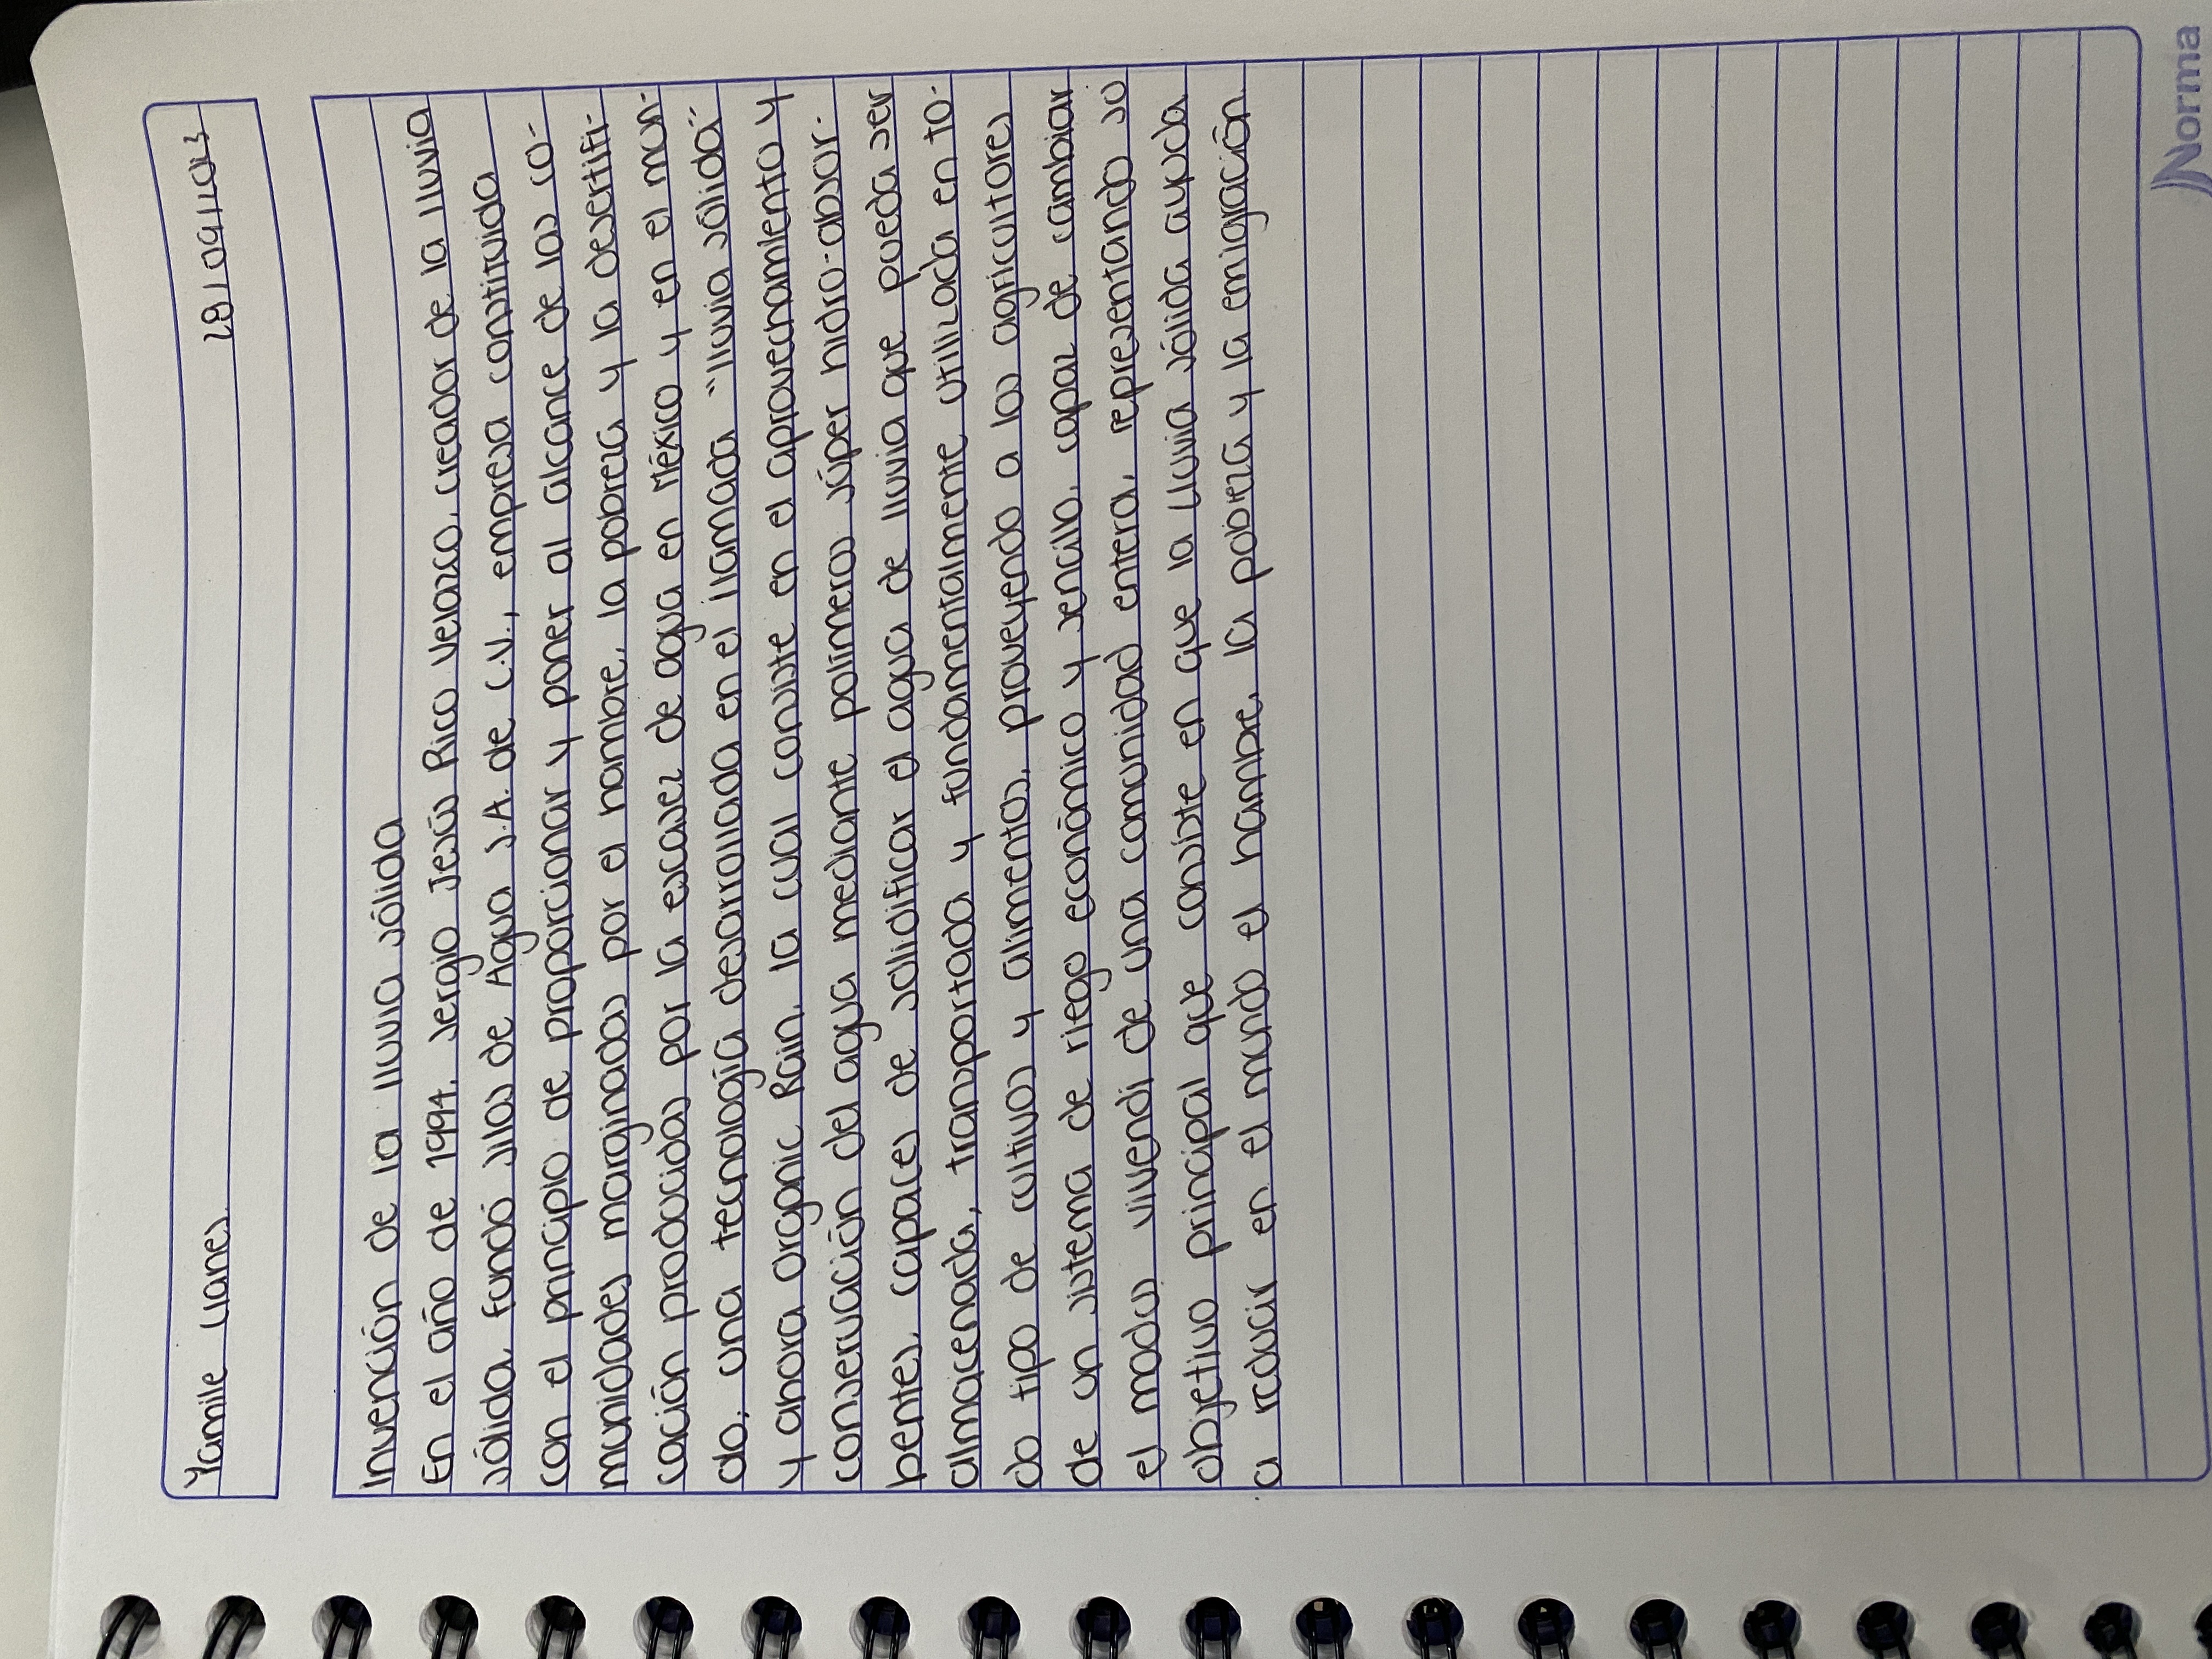 Yamile Llanes.
Invención de la lluvia sólida
En el año de 1994, Sergio Jesús Rico Velazco, creador de la lluvia
sólida, fundó silos de Agua S.A. de C.V., empresa constituida
con el principio de proporcionar y poner al alcance de las co-
munidades marginadas por el hambre, la pobreza y la desertifi-
cación producidas por la escasez de agua en México y en el mun-
do; una tecnología desarrollada en el llamada "lluvia sólida"
y ahora organic Rain, la cual consiste en el aprovechamiento y
conservación del agua mediante polímeros súper hidro-absor-
bentes, capaces de solidificar el agua de lluvia que pueda ser
almacenada, transportada y fundamentalmente utilizada en to-
do tipo de cultivos y alimentos, proveyendo a los agricultores
de un sistema de riego económico y sencillo, capaz de cambiar
el modus vivendi de una comunidad entera, representando su
objetivo principal que consiste en que la lluvia sólida ayuda
a reducir en el mundo el hambre, la pobreza y la emigración.
Norma